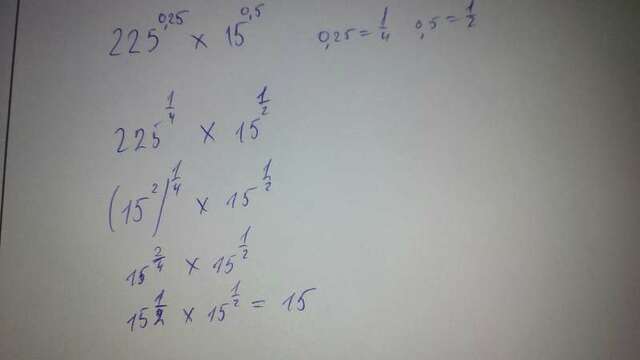 225^0,25 × 15^0,5 0,25 = 1/4 0,5 = 1/2
225^1/4 × 15^1/2
(15^2)^1/4 × 15^1/2
15^2/4 × 15^1/2
15^1/2 × 15^1/2 = 15